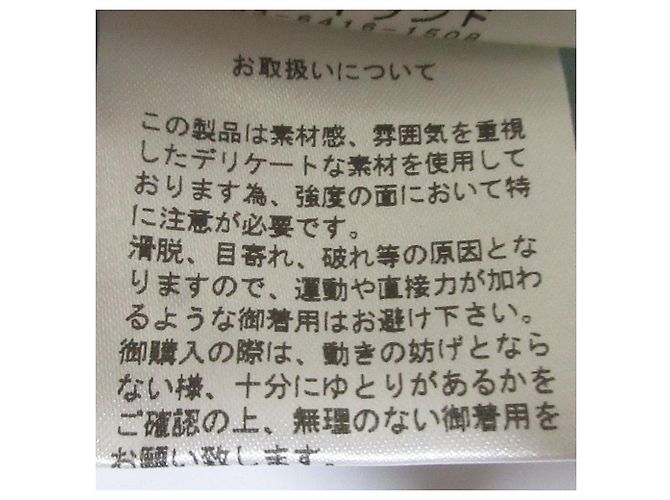 -6416-1508
お取扱いについて
この製品は素材感、雰囲気を重視
したデリケートな素材を使用して
おります為、強度の面において特
に注意が必要です。
滑脱、目寄れ、破れ等の原因とな
りますので、運動や直接力が加わ
るような御着用はお避け下さい。
御購入の際は、動きの妨げとなら
ない様、十分にゆとりがあるかを
ご確認の上、無理のない御着用を
お願い致します。